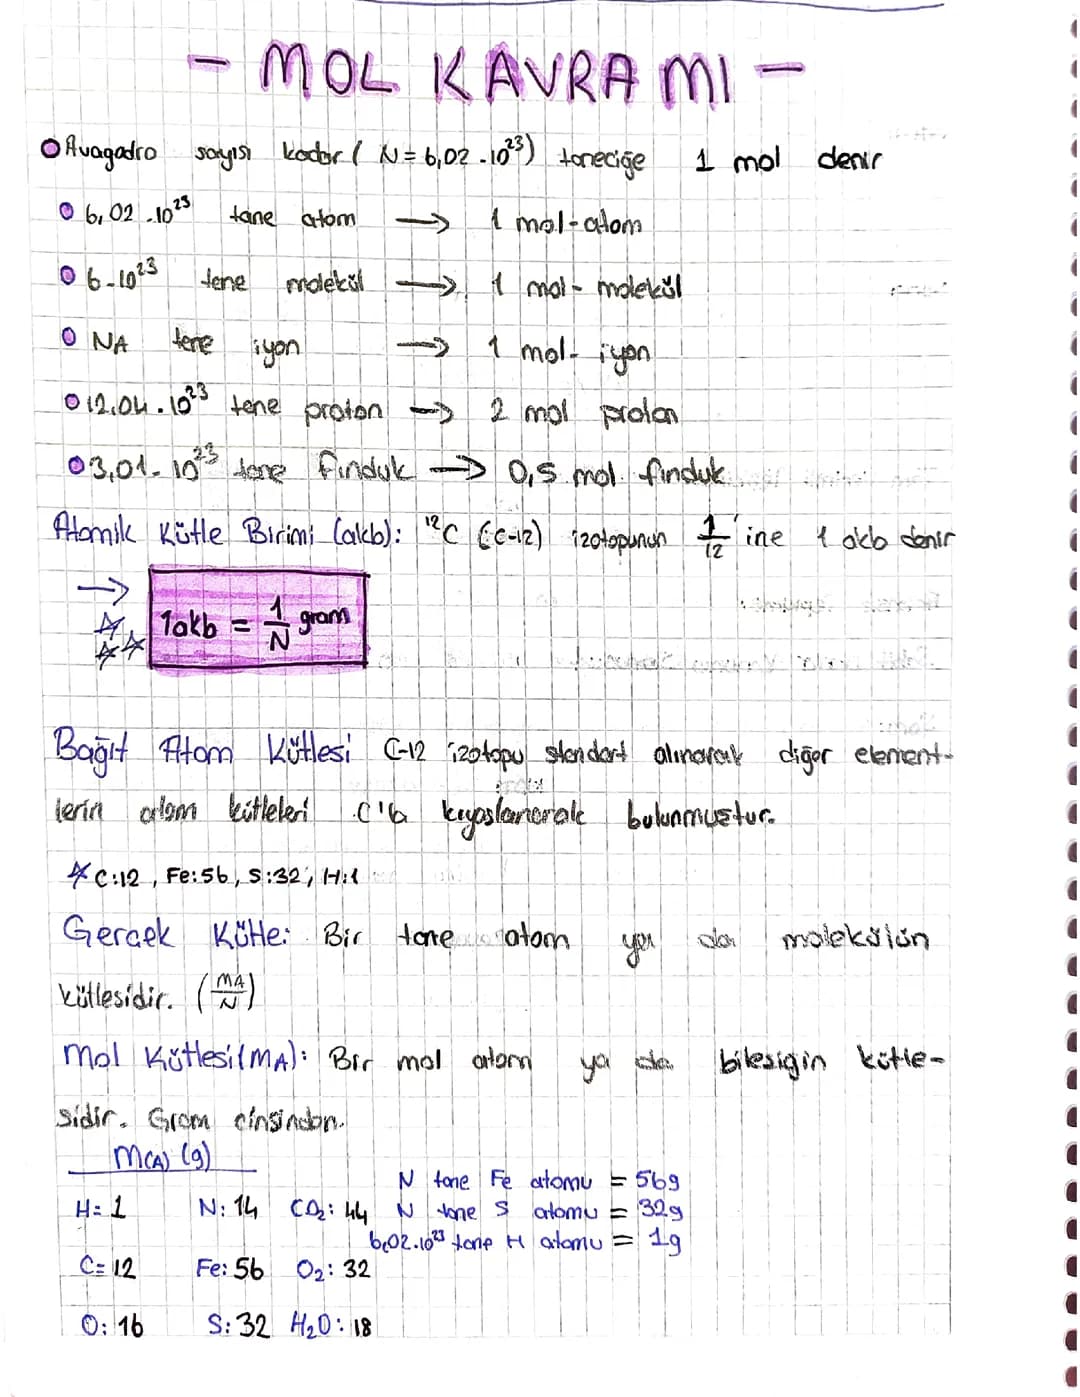 - MOL KAVRAMI -
Avagadro sayısı kadar ( N = 6,02 . 10²³) taneciğe 1 mol denir
6,02 . 10²³ tane atom → 1 mol-atom
6.10²³ tane molekül → 1 mol - molekül
NA tane iyon → 1 mol- iyon
12,04 . 10²³ tane proton → 2 mol proton
3,01. 10²³ tane fındık → 0,5 mol fındık
Atomik Kütle Birimi (akb): ¹²C (C-12) izotopunun 1/12 'ine 1 akb denir
→ 1akb = 1/N gram
Bağıt Atom Kütlesi C-12 izotopu standart alınarak diğer element-
lerin atom kütleleri C'la kıyaslanarak bulunmuştur.
C:12, Fe:56, S:32, H:1
Gerçek Kütle: Bir tane atom ya da molekülün
kütlesidir. (MA/N)
Mol Kütlesi(MA): Bir mol atom ya da bileşiğin kütle-
sidir. Gram cinsinden.
M(A) (g)
N tane Fe atomu = 56g
H= 1 N: 14 CO₂: 44 N tane S atomu = 32g
6,02.10²³ tane H atomu = 1g
C= 12 Fe: 56 O₂: 32
O: 16 S: 32 H₂O: 18